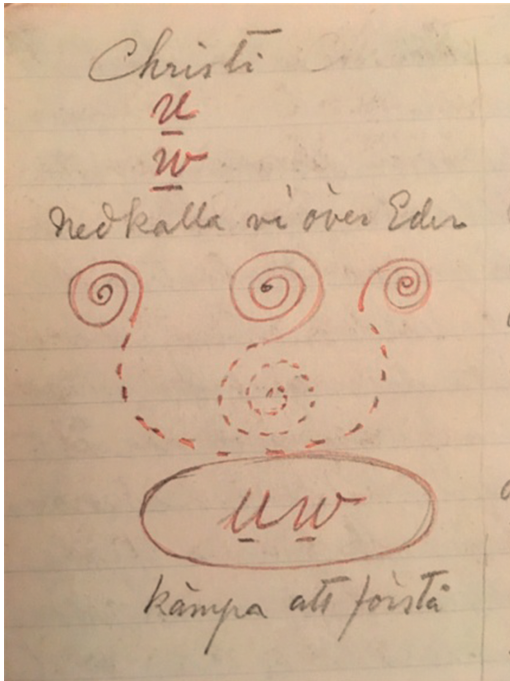 Christi
u
w
Nedkalla vi över Eder
uw
kämpa att förstå